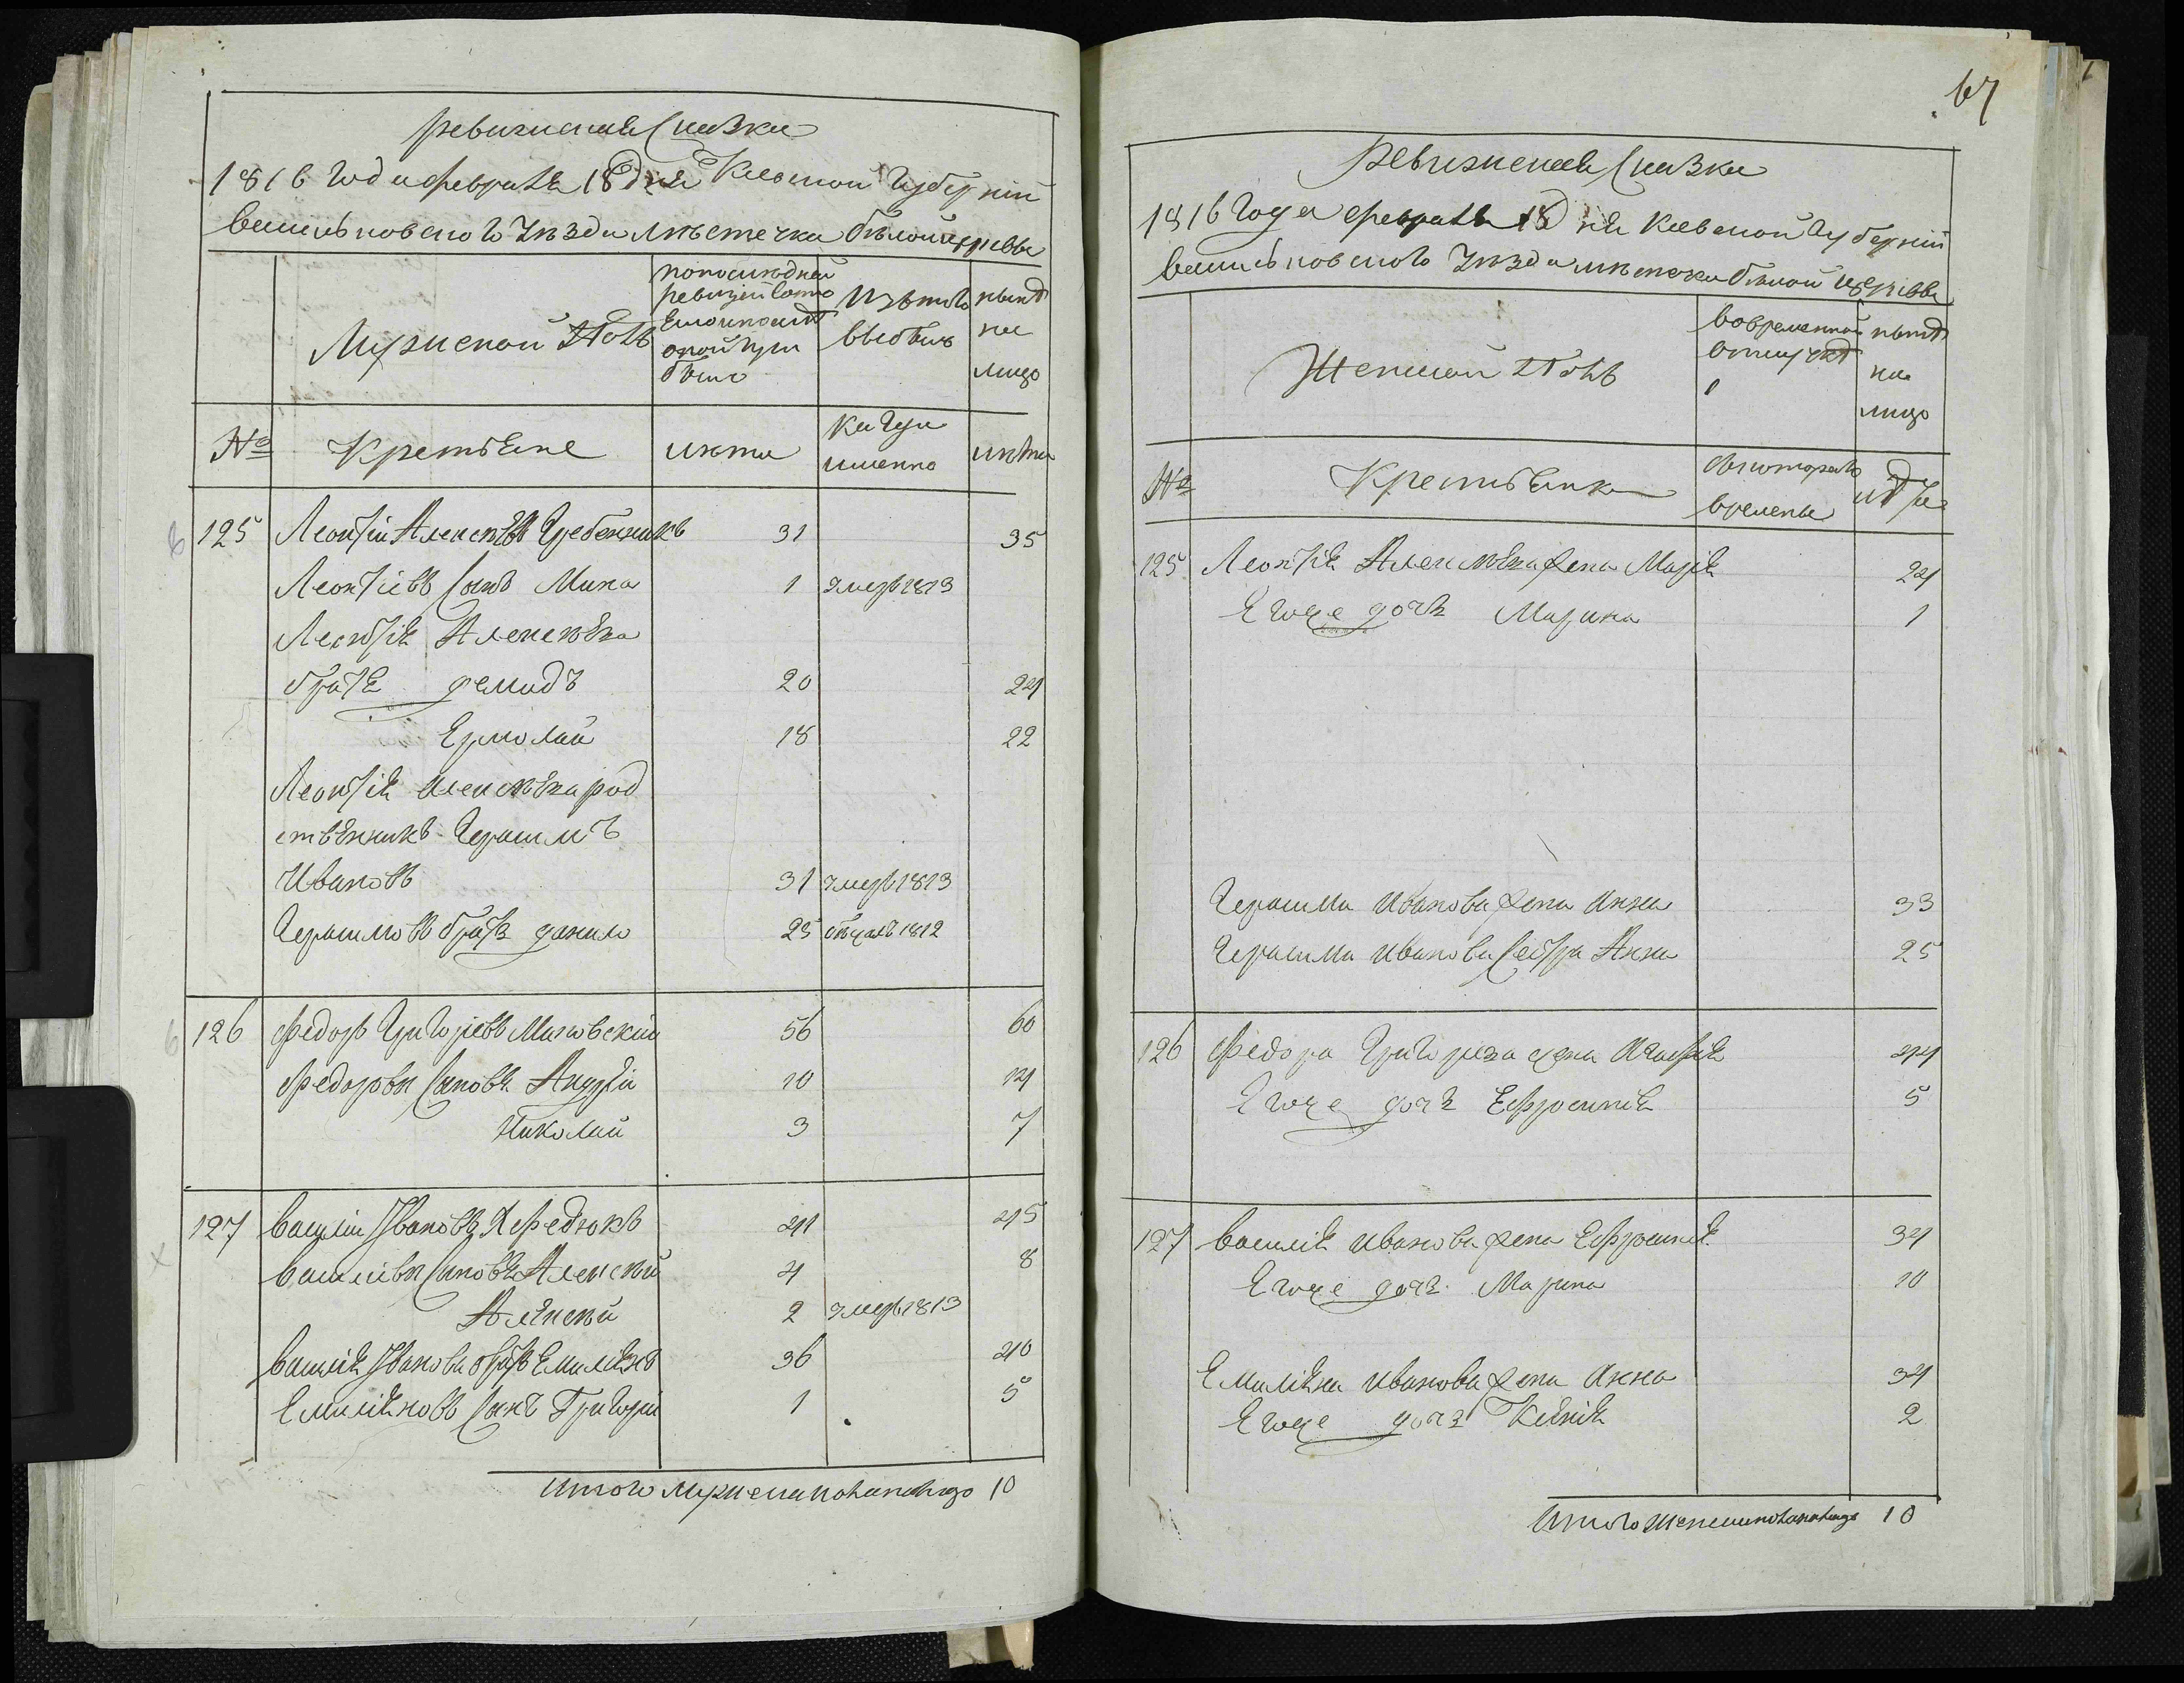 67
Ревизская Сказка
1816 Года февраля 18 дня Киевской Губерніи
Васильковского Уезда местечка белой церквы
Мужеской Полъ
по последней ревизіи состояло и после оной прибыло
Изътого выбыло
ныне на лицо
№ Крестьяне
лета
Когда именно
лета
125 Леонтій Алексеевъ Гребенникъ 31 35
Леонтіевъ Сынъ Мина 1 умеръ 1813
Леонтія Алексеева
братя демидъ 20 24
Ермолай 18 22
Леонтія Алексеева род
ственникъ Герасимъ
Ивановъ 31 умеръ 1813
Герасимовъ братъ данило 25 1812
126 Федоръ Григорьевъ 56 60
Федоровы Сыновя Андрей 10 14
Николай 3 7
127 Василій Ивановъ Нефедюкъ 41 45
Василіевы Сыновя Алексей 4 8
Алексей 2 умеръ 1813
Василія Иванова братъ Емиліянъ 36 40
Емиліяновъ Сынъ Григорій 1 5
Итого мужеска пола на лицо 10
Ревизская Сказка
1816 Года февраля 18 дня Киевской Губерніи
Васильковского Уезда местечка белой церквы
Женской Полъ
во временной отлучке
ныне на лицо
№ Крестьянки
съ котораго времены
лета
125 Леонтія Алексеева жена Марія 24
Егоже дочь Марина 1
Герасима Иванова жена Анна 33
Герасима Иванова Сестра Анна 25
126 Федора Григорева жена Агафія 44
Егоже дочь Ефросинія 5
127 Василія Иванова жена Ефросинія 34
Егоже дочь Марина 10
Емиліяна Иванова жена Анна 34
Егоже дочь Ксенія 2
Итого женска пола на лицо 10